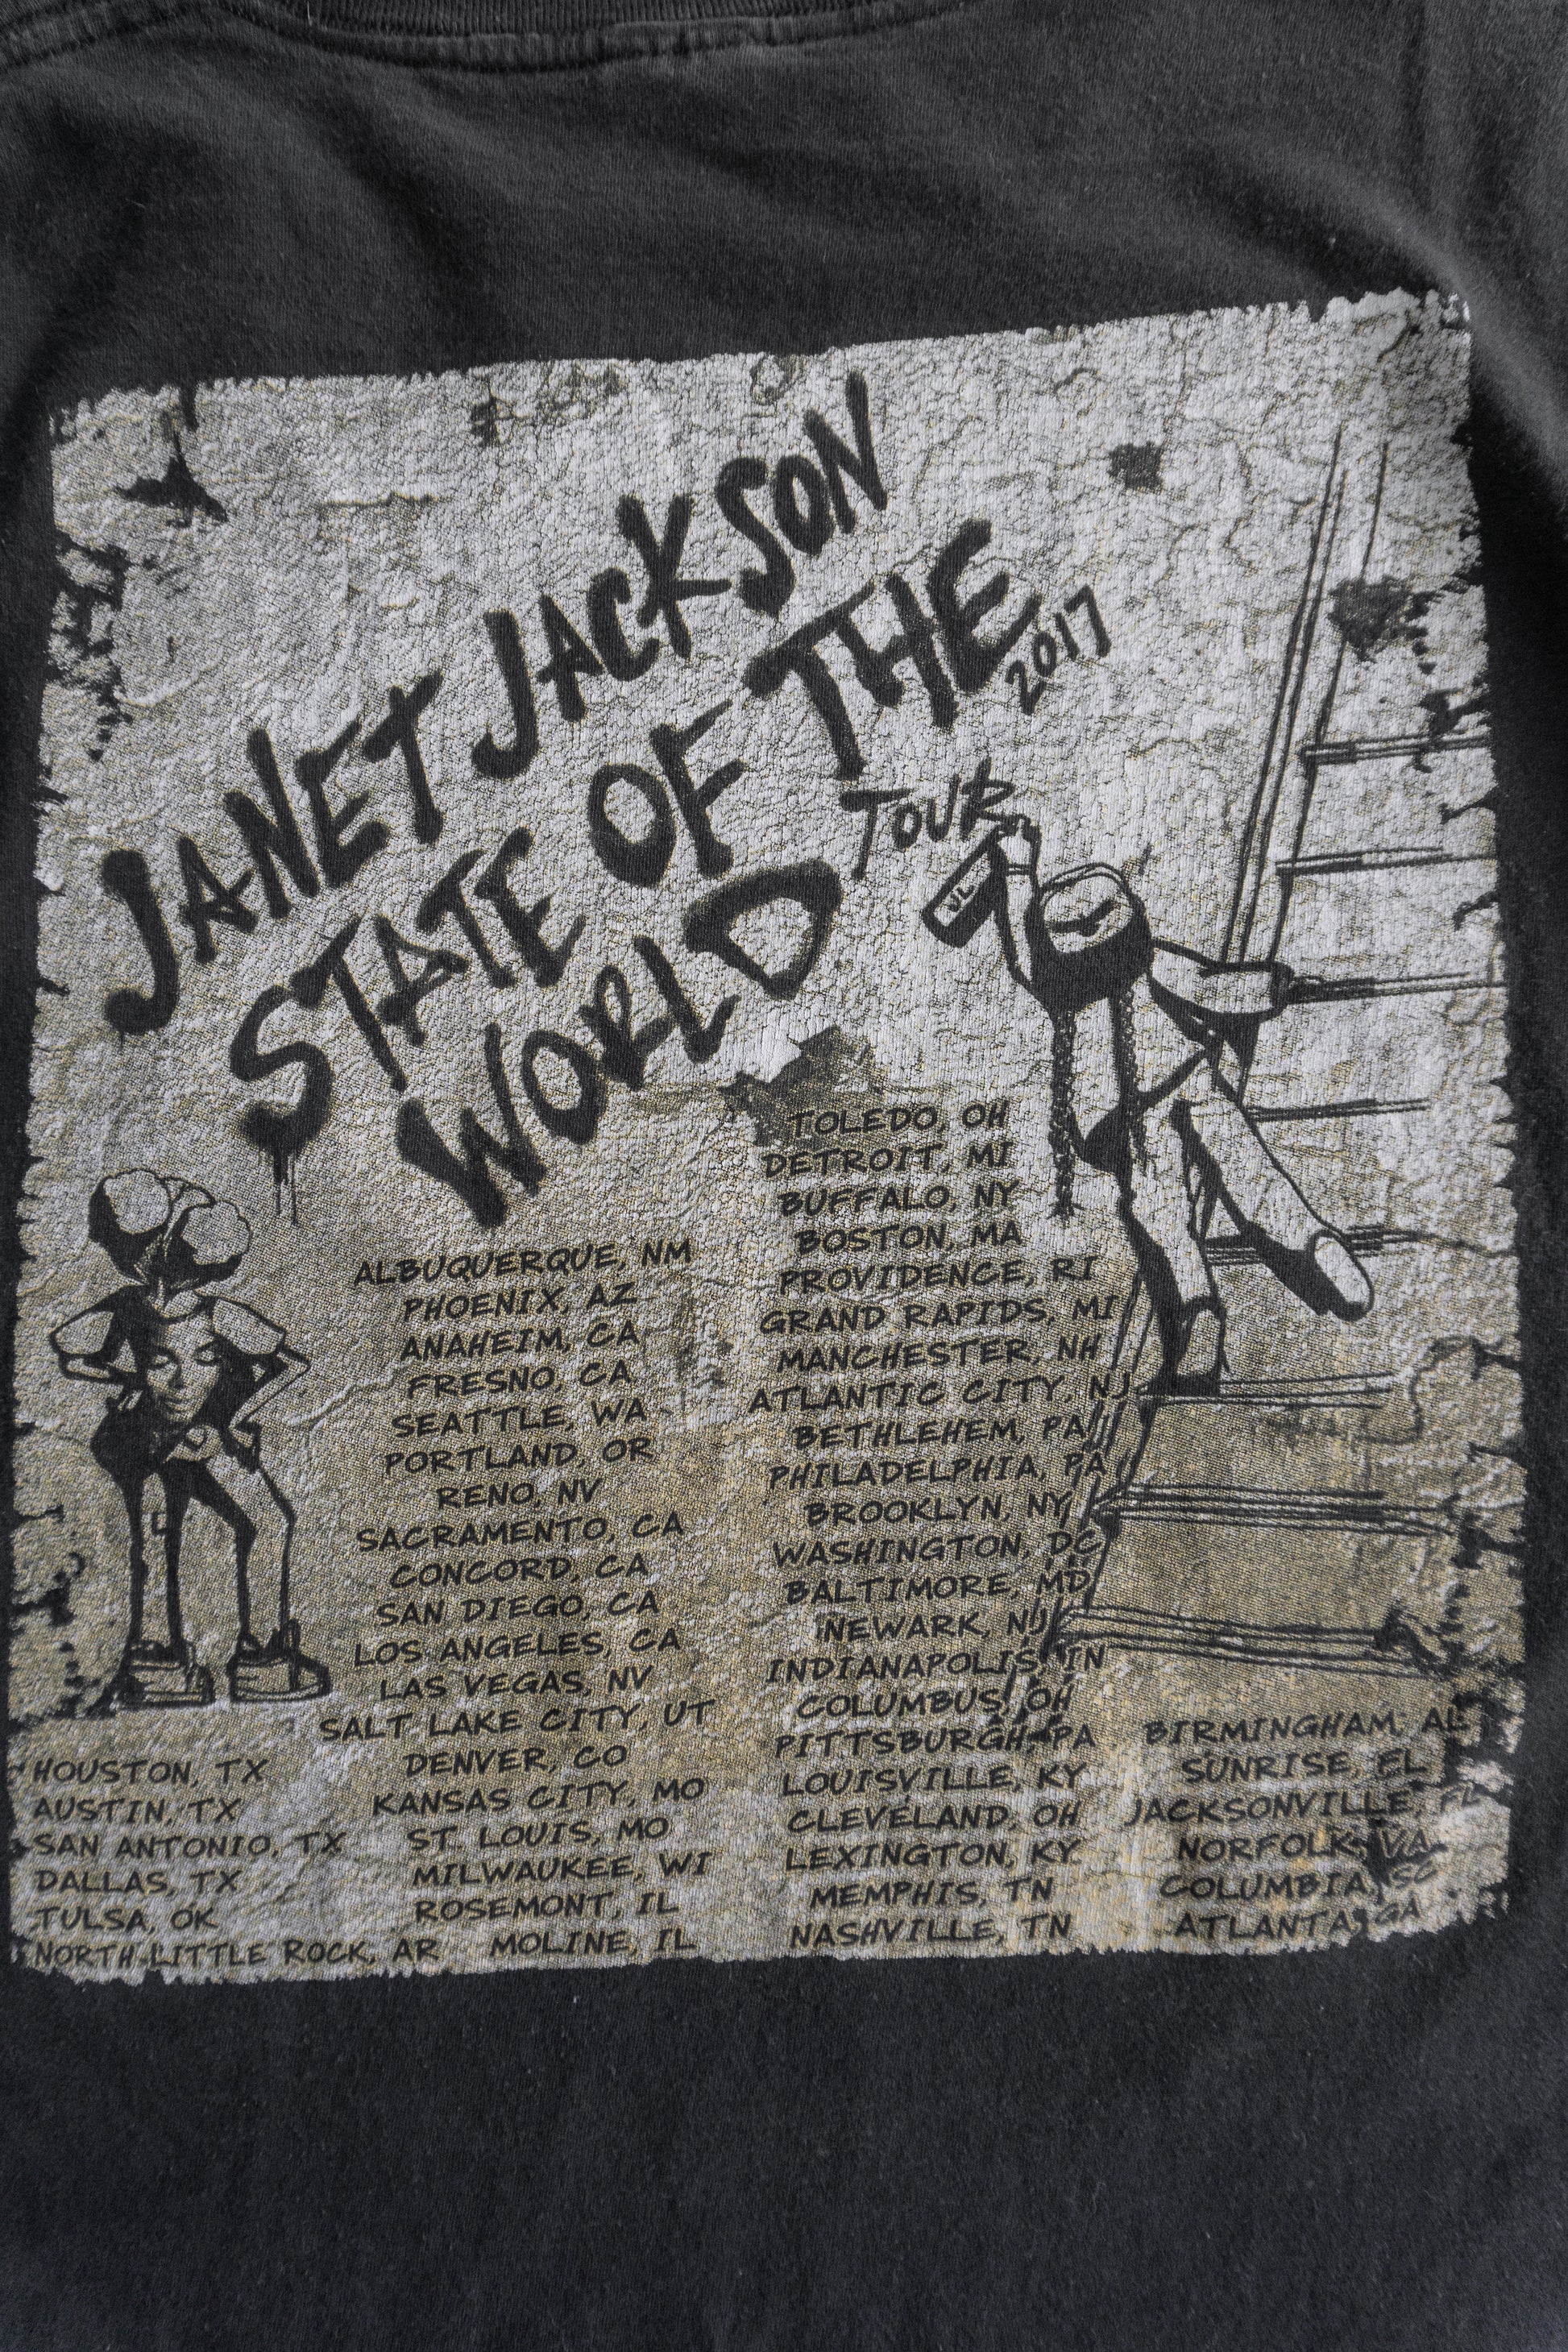 JANET JACKSON
STATE OF THE
WORLD
TOUR
2017
JL
HOUSTON, TX
AUSTIN, TX
SAN ANTONIO, TX
DALLAS, TX
TULSA, OK
NORTH LITTLE ROCK, AR
ALBUQUERQUE, NM
PHOENIX, AZ
ANAHEIM, CA
FRESNO, CA
SEATTLE, WA
PORTLAND, OR
RENO, NV
SACRAMENTO, CA
CONCORD, CA
SAN DIEGO, CA
LOS ANGELES, CA
LAS VEGAS, NV
SALT LAKE CITY, UT
DENVER, CO
KANSAS CITY, MO
ST. LOUIS, MO
MILWAUKEE, WI
ROSEMONT, IL
MOLINE, IL
TOLEDO, OH
DETROIT, MI
BUFFALO, NY
BOSTON, MA
PROVIDENCE, RI
GRAND RAPIDS, MI
MANCHESTER, NH
ATLANTIC CITY, NJ
BETHLEHEM, PA
PHILADELPHIA, PA
BROOKLYN, NY
WASHINGTON, DC
BALTIMORE, MD
NEWARK, NJ
INDIANAPOLIS, IN
COLUMBUS, OH
PITTSBURGH, PA
LOUISVILLE, KY
CLEVELAND, OH
LEXINGTON, KY
MEMPHIS, TN
NASHVILLE, TN
BIRMINGHAM, AL
SUNRISE, FL
JACKSONVILLE, FL
NORFOLK, VA
COLUMBIA, SC
ATLANTA, GA